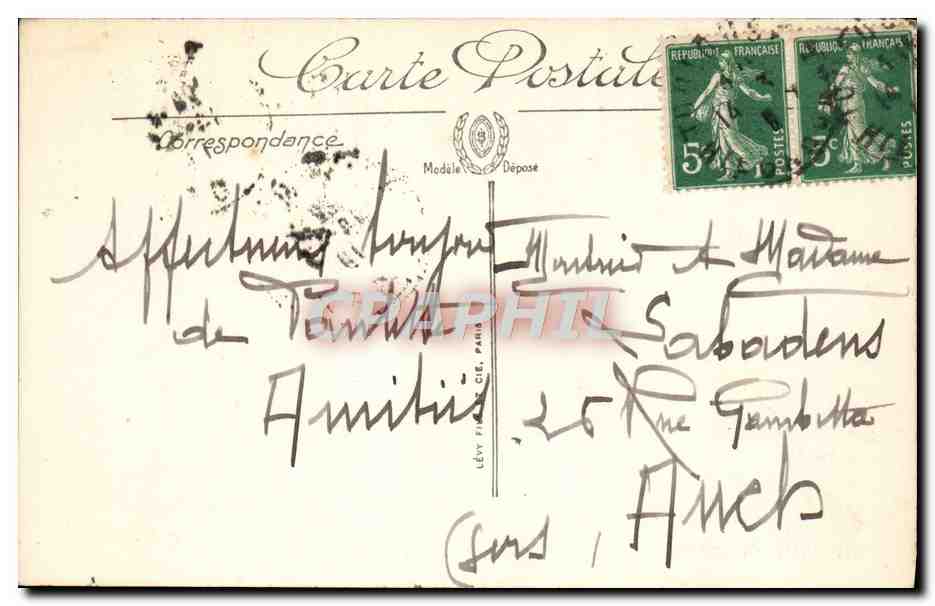 Carte Postale
RÉPUBLIQUE FRANÇAISE
5c
POSTES
RÉPUBLIQUE FRANÇAISE
5c
POSTES
Correspondance
Modèle Déposé
Affectueux toujours
de
Amitiés
Monsieur et Madame
Sabadens
25 Rue Gambetta
Auch
(Gers)
LÉVY FILS & CIE, PARIS
CRAPHIL